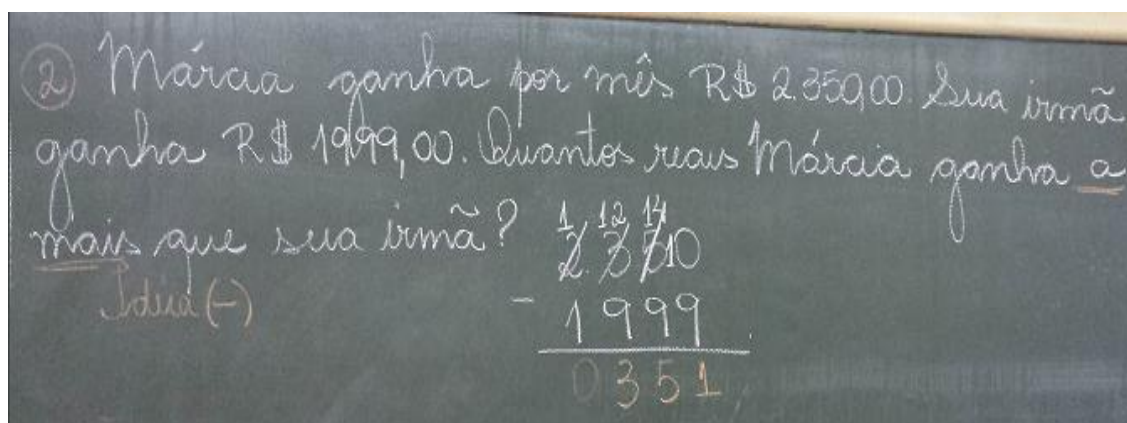 ② Márcia ganha por mês R$ 2.350,00. Sua irmã
ganha R$ 1999,00. Quantos reais Márcia ganha a
mais que sua irmã?
Ideia (-)
1 12 14
2.3 5 10
- 1 9 9 9
0 3 5 1